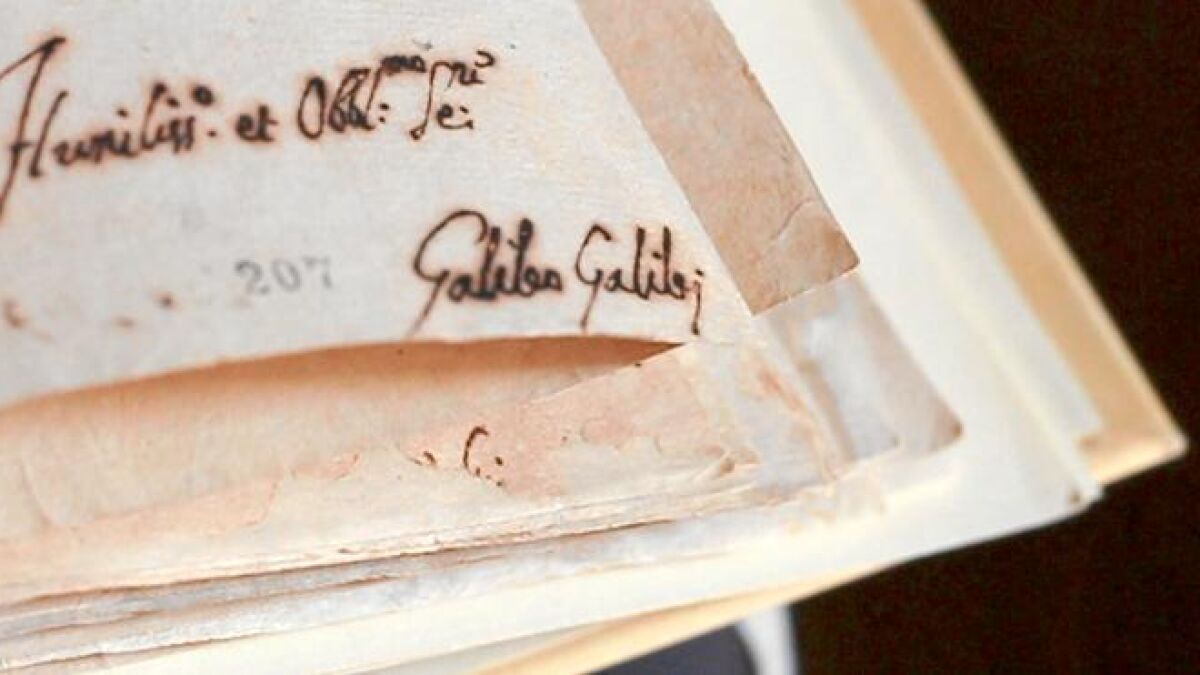 Humiliss.º et Obbl:mo S.re
207
Galileo Galilej